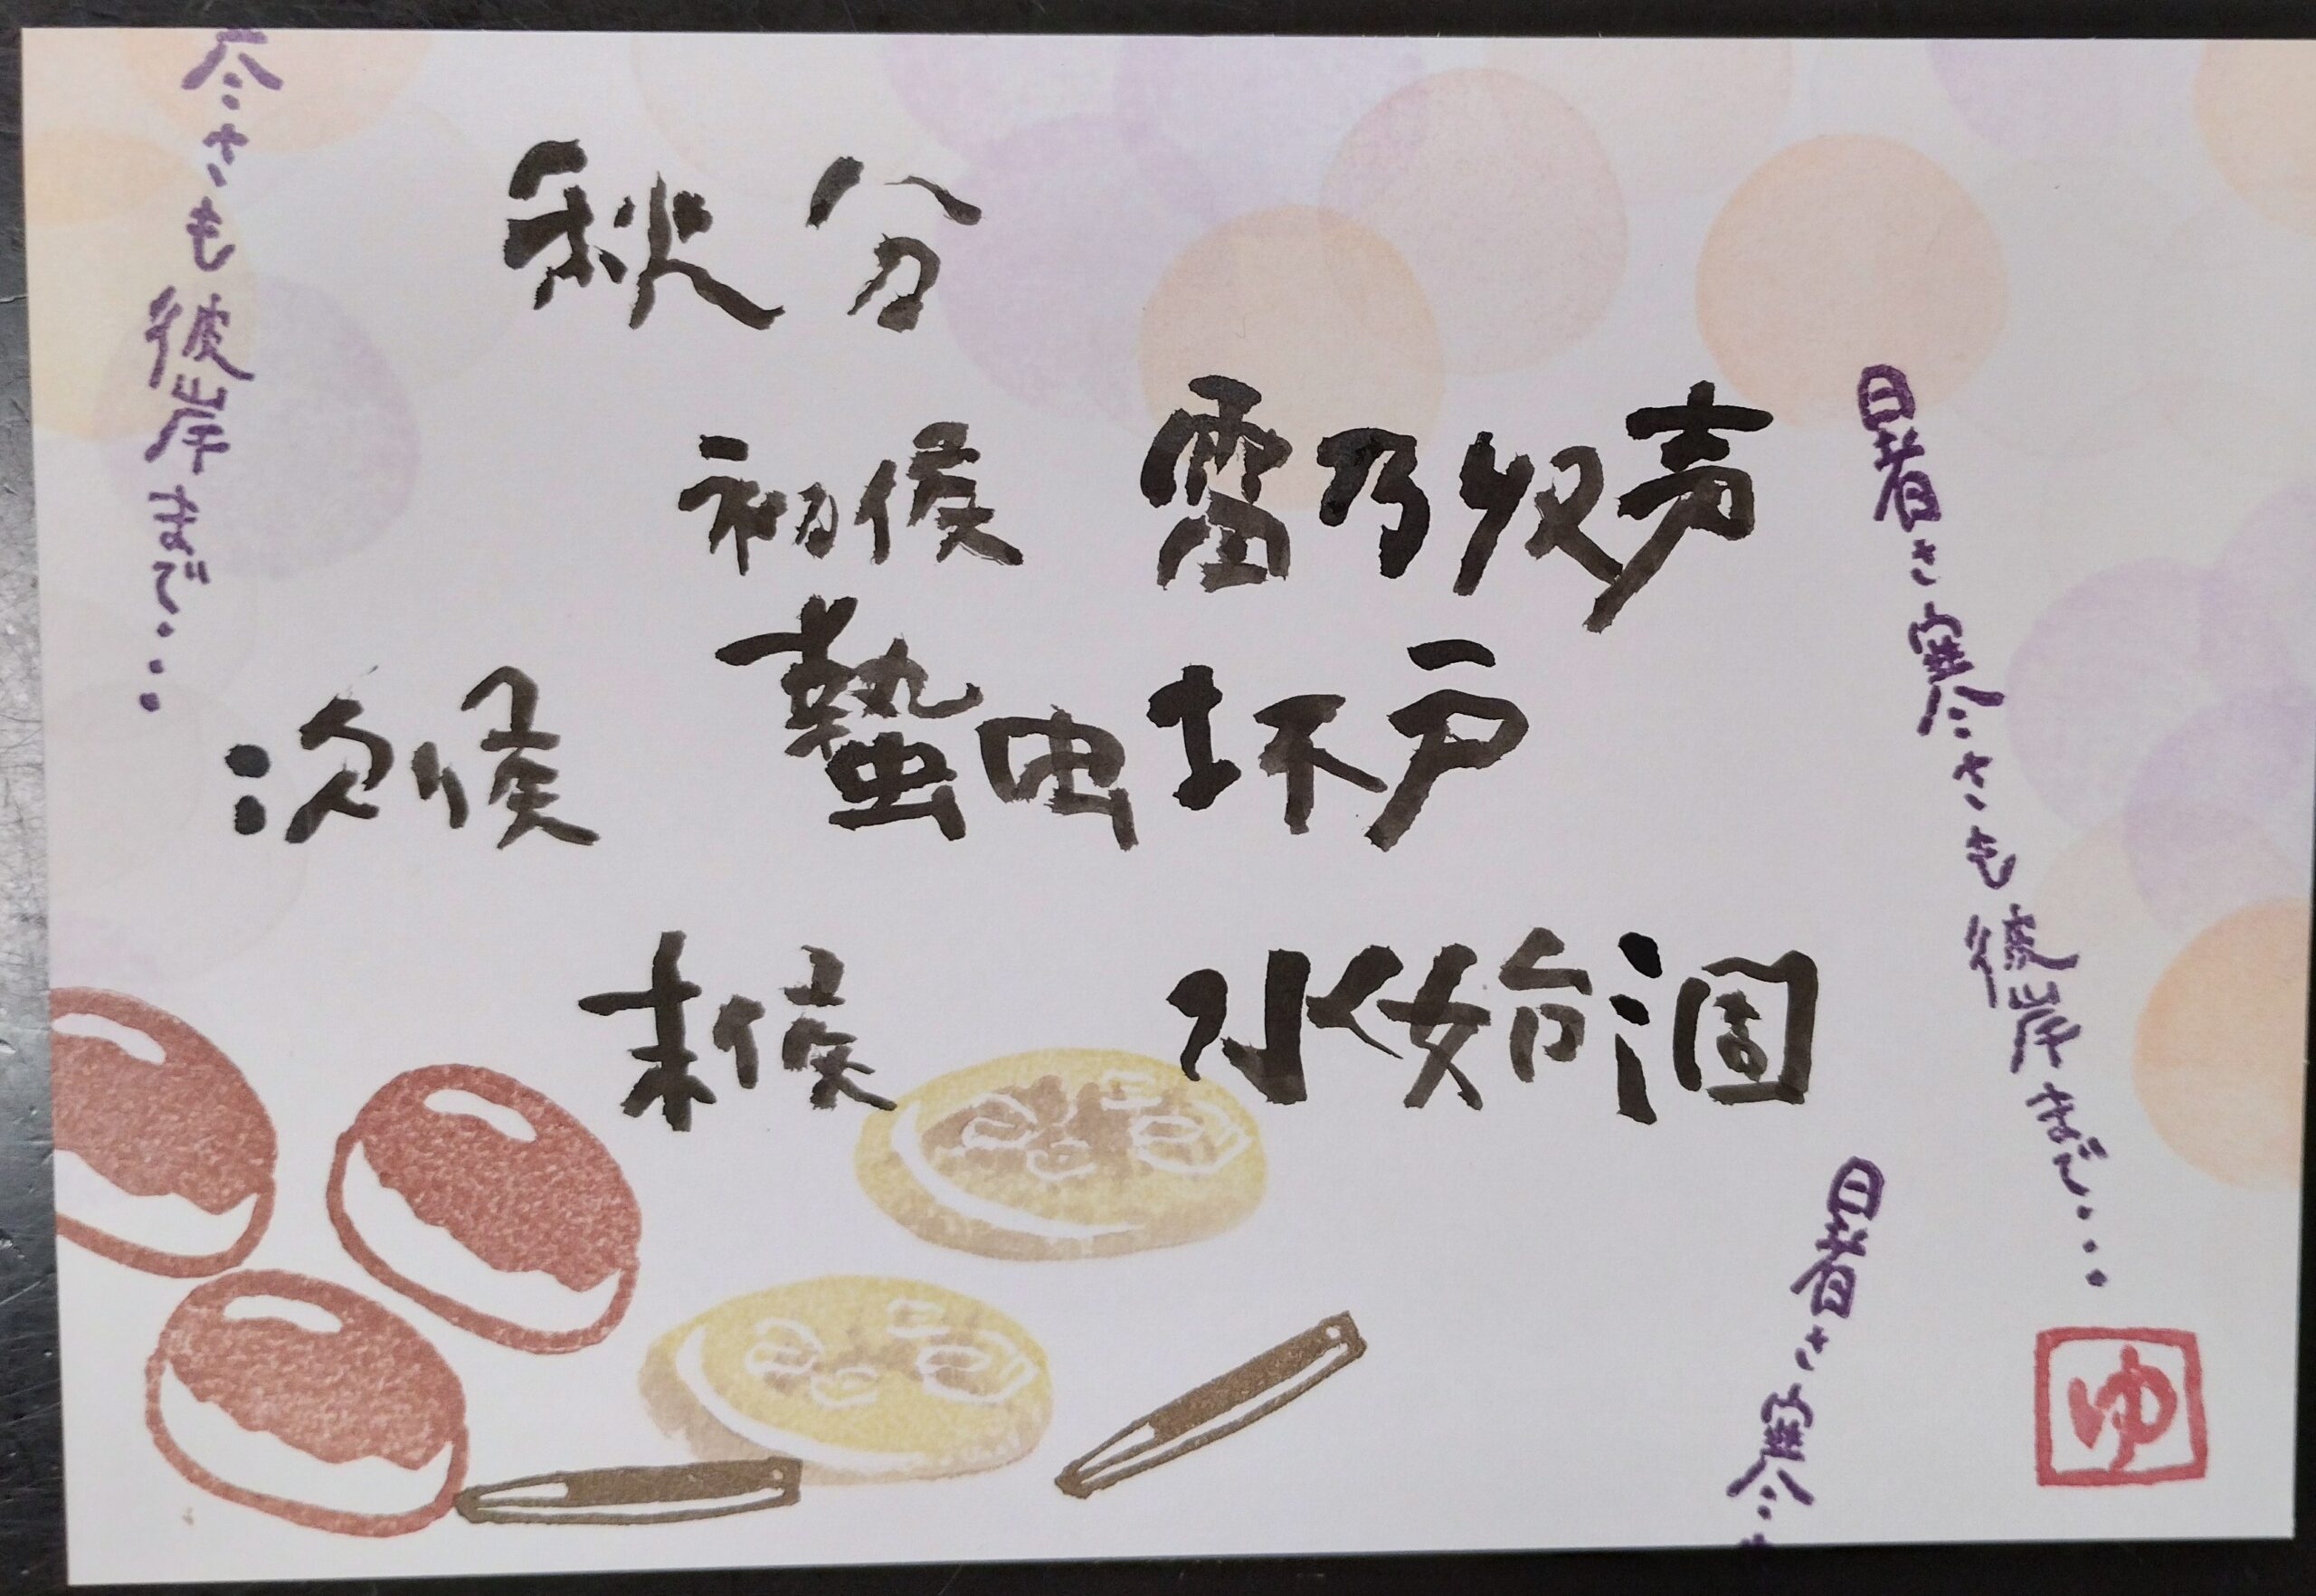 秋分
初候 雷乃収声
次候 蟄虫坏戸
末候 水始涸
暑さ寒さも彼岸まで・・・
暑さ寒
さも彼岸まで・・・
ゆ